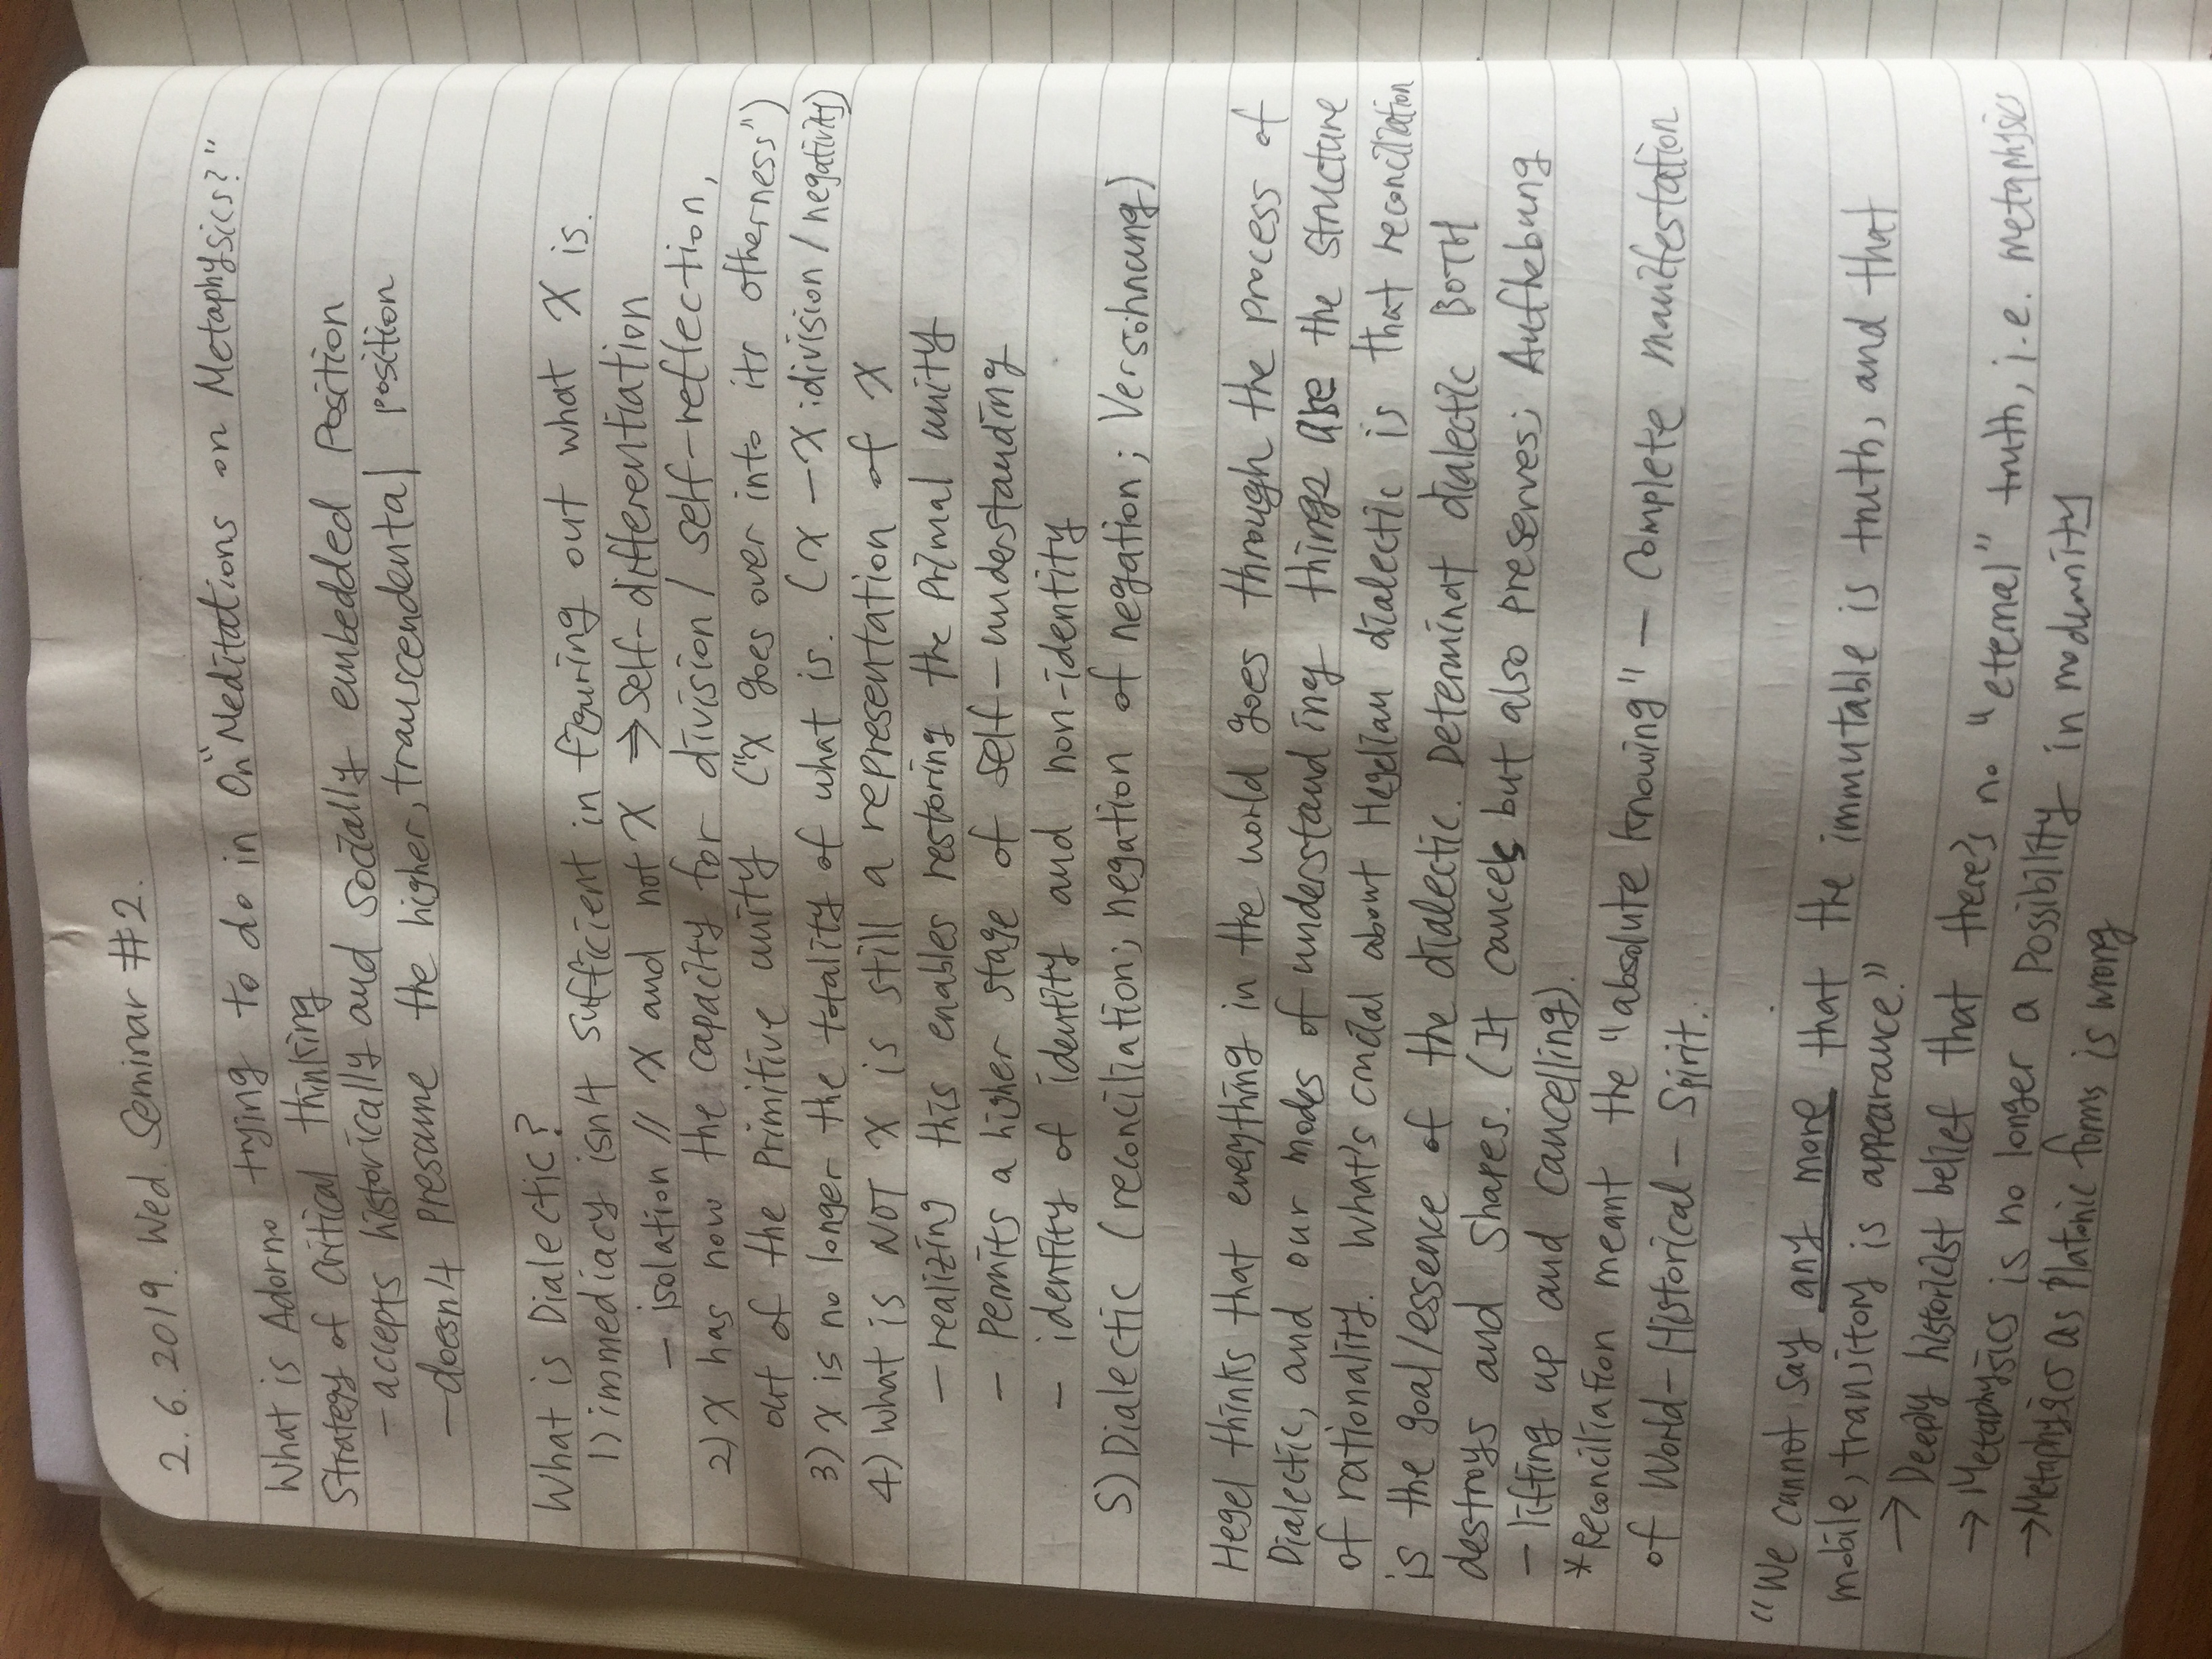 2. 6. 2019. Wed. Seminar #2.
What is Adorno trying to do in On "Meditations on Metaphysics?"
Strategy of critical thinking
- accepts historically and socially embedded position
- doesn't presume the higher, transcendental position
What is Dialectic?
1) immediacy isn't sufficient in figuring out what X is.
- isolation // X and not X → self-differentiation
2) X has now the capacity for division / self-reflection,
out of the primitive unity ("X goes over into its otherness")
3) X is no longer the totality of what is. (X – -X : division / negativity)
4) What is NOT X is still a representation of X
- realizing this enables restoring the primal unity
- Permits a higher stage of self-understanding
- identity of identity and non-identity
5) Dialectic (reconciliation; negation of negation; Versöhnung)
Hegel thinks that everything in the world goes through the process of
Dialectic, and our modes of understanding things are the structure
of rationality. What's crucial about Hegelian dialectic is that reconciliation
is the goal/essence of the dialectic. Determinat dialectic BOTH
destroys and shapes. (It cancels but also preserves; Aufhebung
- lifting up and cancelling).
* Reconciliation meant the "absolute knowing" — complete manifestation
of World-Historical-Spirit.
"We cannot say any more that the immutable is truth, and that
mobile, transitory is appearance."
→ Deeply historicist belief that there's no "eternal" truth, i.e. metaphysics
→ Metaphysics is no longer a possibility in modernity
→ Metaphysics as Platonic forms is wrong